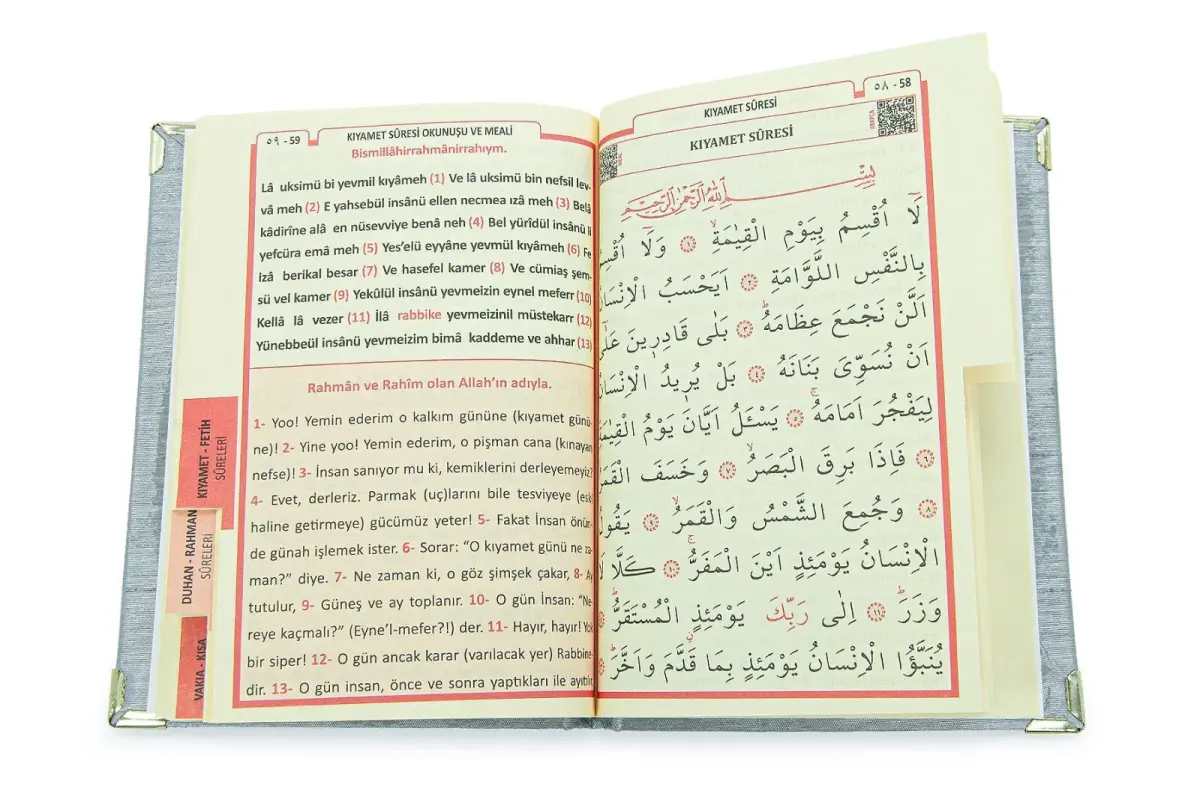 ٥٩ - 59
KIYAMET SÛRESİ OKUNUŞU VE MEALİ
Bismillâhirrahmânirrahıym.
Lâ uksimü bi yevmil kıyâmeh (1) Ve lâ uksimü bin nefsil lev-
vâ meh (2) E yahsebül insânü ellen necmea ızâ meh (3) Belâ
kâdirîne alâ en nüsevviye benâ neh (4) Bel yürîdül insânü li
yefcüra emâ meh (5) Yes'elü eyyâne yevmül kıyâmeh (6) Fe
izâ berikal besar (7) Ve hasefel kamer (8) Ve cümiaş şem-
sü vel kamer (9) Yekûlül insânü yevmeizin eynel meferr (10)
Kellâ lâ vezer (11) İlâ rabbike yevmeizinil müstekarr (12)
Yünebbeül insânü yevmeizim bimâ kaddeme ve ahhar (13)
Rahmân ve Rahîm olan Allah'ın adıyla.
1- Yoo! Yemin ederim o kalkım gününe (kıyamet günü-
ne)! 2- Yine yoo! Yemin ederim, o pişman cana (kınayan
nefse)! 3- İnsan sanıyor mu ki, kemiklerini derleyemeyiz?
4- Evet, derleriz. Parmak (uç)larını bile tesviyeye (eski
haline getirmeye) gücümüz yeter! 5- Fakat İnsan önün-
de günah işlemek ister. 6- Sorar: "O kıyamet günü ne za-
man?" diye. 7- Ne zaman ki, o göz şimşek çakar, 8- Ay
tutulur, 9- Güneş ve ay toplanır. 10- O gün İnsan: "Ne
reye kaçmalı?" (Eyne'l-mefer?!) der. 11- Hayır, hayır! Yok
bir siper! 12- O gün ancak karar (varılacak yer) Rabbine-
dir. 13- O gün insan, önce ve sonra yaptıkları ile ayıtılır
KIYAMET - FETİH
SÛRELERİ
DUHAN - RAHMAN
SÛRELERİ
VAKIA - KISA
٥٨ - 58
KIYAMET SÛRESİ
KIYAMET SÛRESİ
ARAPÇA
MEAL
بِسْمِ اللّٰهِ الرَّحْمٰنِ الرَّحِيمِ
لَٓا اُقْسِمُ بِيَوْمِ الْقِيٰمَةِۙ ﴿١﴾ وَلَٓا اُقْسِمُ
بِالنَّفْسِ اللَّوَّامَةِ ﴿٢﴾ اَيَحْسَبُ الْاِنْسَانُ
اَلَّنْ نَجْمَعَ عِظَامَهُۜ ﴿٣﴾ بَلٰى قَادِر۪ينَ عَلٰٓى
اَنْ نُسَوِّيَ بَنَانَهُ ﴿٤﴾ بَلْ يُر۪يدُ الْاِنْسَانُ
لِيَفْجُرَ اَمَامَهُۚ ﴿٥﴾ يَسْـَٔلُ اَيَّانَ يَوْمُ الْقِيٰمَةِۜ
﴿٦﴾ فَاِذَا بَرِقَ الْبَصَرُۙ ﴿٧﴾ وَخَسَفَ الْقَمَرُۙ
﴿٨﴾ وَجُمِعَ الشَّمْسُ وَالْقَمَرُۙ ﴿٩﴾ يَقُولُ
الْاِنْسَانُ يَوْمَئِذٍ اَيْنَ الْمَفَرُّۚ ﴿١٠﴾ كَلَّا لَا
وَزَرَۜ ﴿١١﴾ اِلٰى رَبِّكَ يَوْمَئِذٍ الْمُسْتَقَرُّۜ
يُنَبَّؤُا الْاِنْسَانُ يَوْمَئِذٍ بِمَا قَدَّمَ وَاَخَّرَۜ